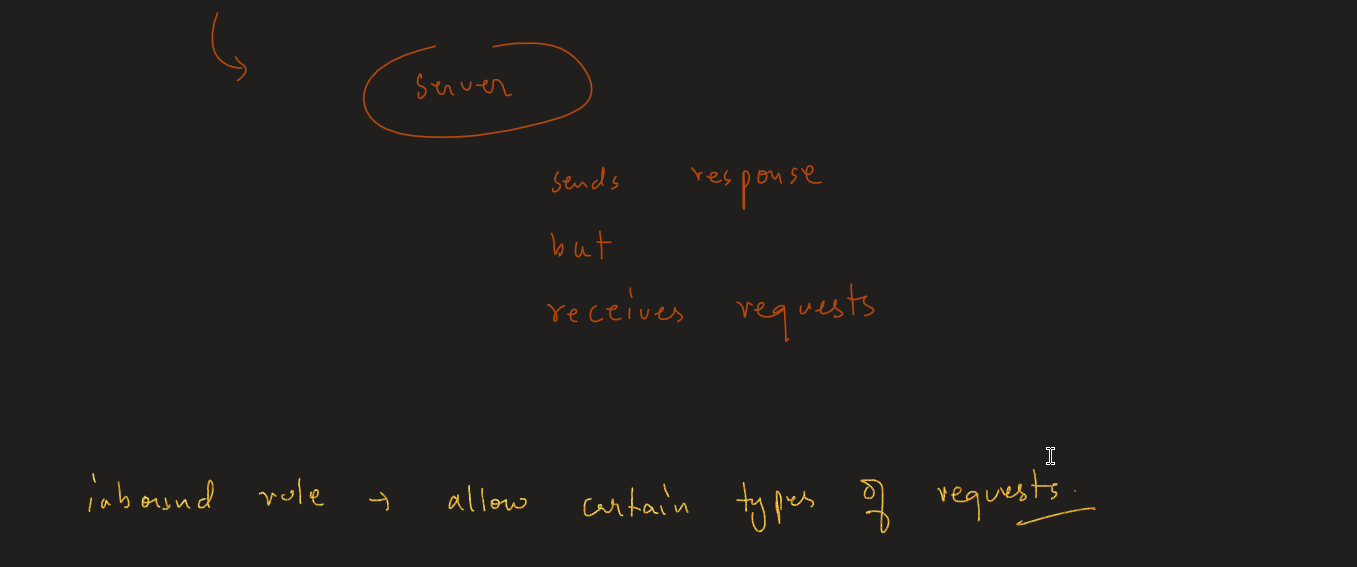 server
sends response
but
receives requests
inbound rule → allow certain types of requests.